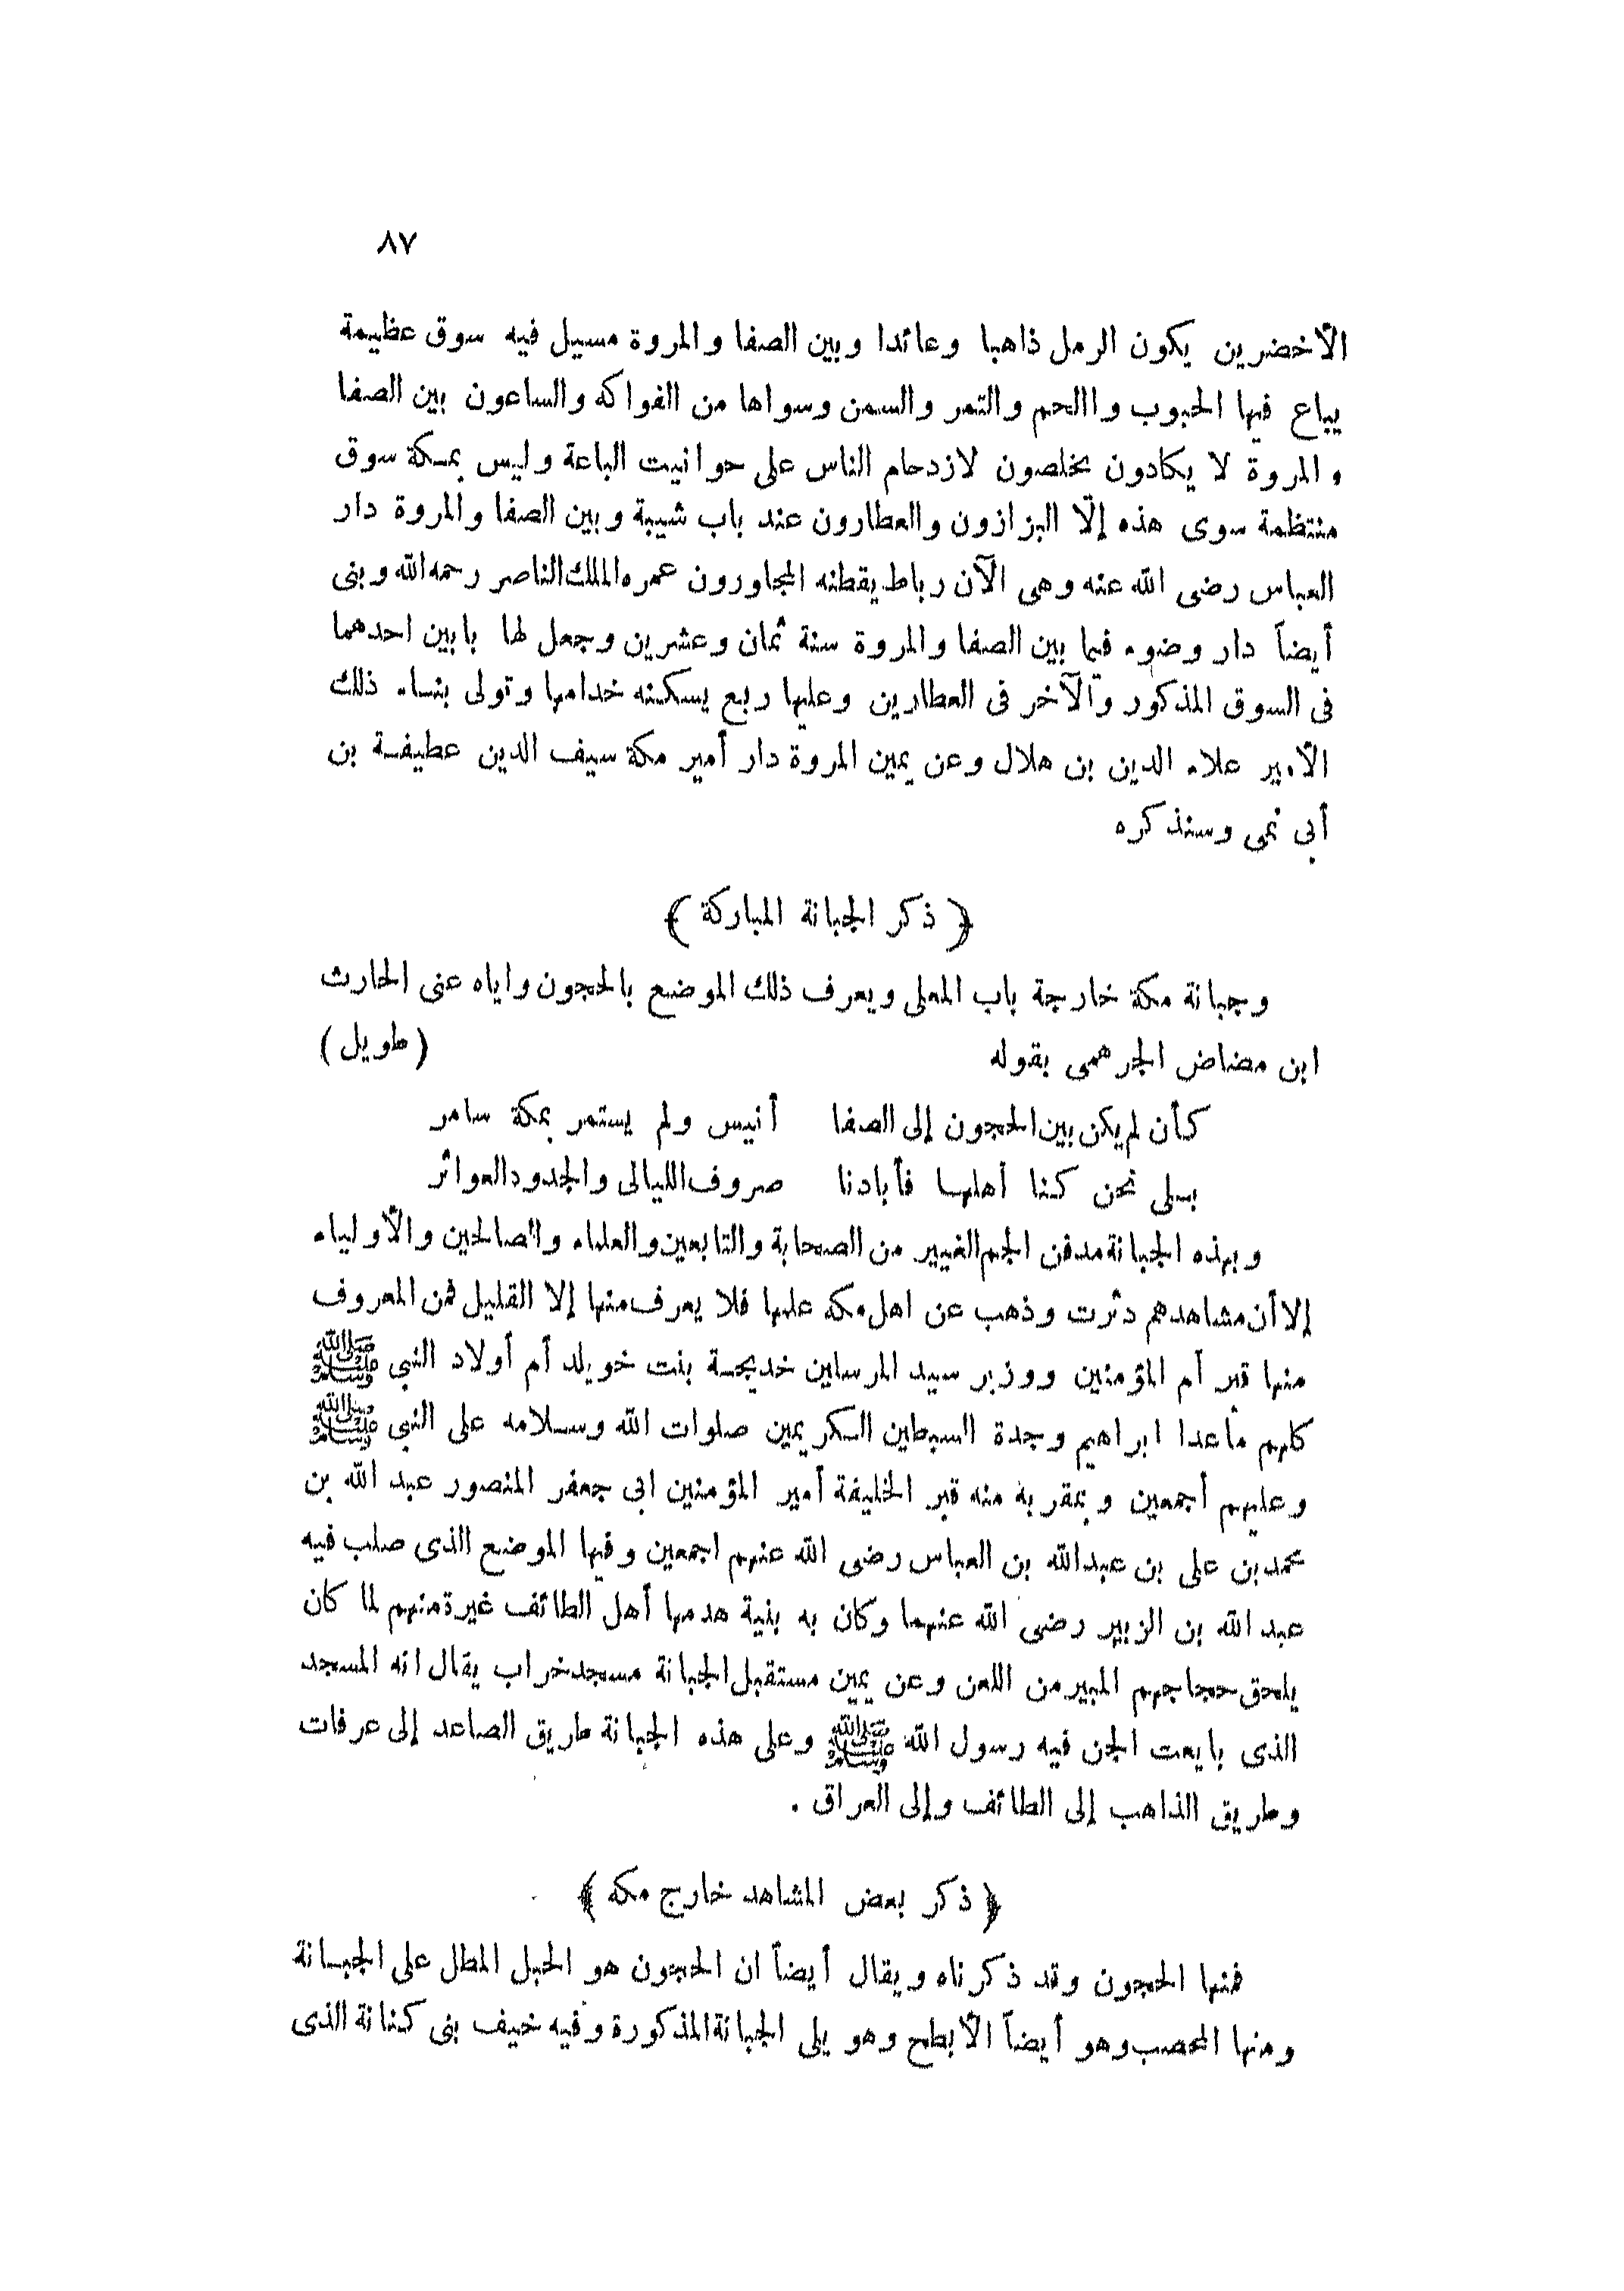 ٨٧
الأخضرين يكون الرمل ذاهبا وعائدا وبين الصفا والمروة مسيل فيه سوق عظيمة
يباع فيها الحبوب واللحم والتمر والسمن وسواها من الفواكه والساعون بين الصفا
والمروة لا يكادون يخلصون لازدحام الناس على حوانيت الباعة وليس بمكة سوق
منتظمة سوى هذه إلّا البزازون والعطارون عند باب شيبة وبين الصفا والمروة دار
العباس رضى الله عنه وهى الآن رباط يقطنه المجاورون عمره الملك الناصر رحمه الله وبنى
أيضاً دار وضوء فيما بين الصفا والمروة سنة ثمان وعشرين وجعل لها بابين احدهما
فى السوق المذكور والآخر فى العطارين وعليها ربع يسكنه خدامها وتولى بناء ذلك
الأمير علاء الدين بن هلال وعن يمين المروة دار أمير مكة سيف الدين عطيفة بن
أبى نمى وسنذكره
﴿ ذكر الجبانة المباركة ﴾
وجبانة مكة خارجة باب المعلى ويعرف ذلك الموضع بالحجون واياه عنى الحارث
ابن مضاض الجرهمى بقوله (طويل)
كأن لم يكن بين الحجون إلى الصفا أنيس ولم يستمر بمكة سامر
بلى نحن كنا أهلها فأبادنا صروف الليالى والجدود العواثر
وبهذه الجبانة مدفن الجم الغيير من الصحابة والتابعين والعلماء والصالحين والأولياء
إلا أن مشاهدهم دثرت وذهب عن اهل مكه علمها فلا يعرف منها إلا القليل فمن المعروف
منها قبر أم المؤمنين ووزير سيد المرسلين خديجة بنت خويلد أم أولاد النبى ﷺ
كلهم ماعدا ابراهيم وجدة السبطين الكريمين صلوات الله وسلامه على النبى ﷺ
وعليهم أجمعين وبمقربة منه قبر الخليفة أمير المؤمنين ابى جعفر المنصور عبد الله بن
محمد بن على بن عبدالله بن العباس رضى الله عنهم اجمعين وفيها الموضع الذى صلب فيه
عبد الله بن الزبير رضى الله عنهما وكان به بنية هدمها أهل الطائف غيرة منهم لما كان
يلحق حجاجهم المبير من اللعن وعن يمين مستقبل الجبانة مسجد خراب يقال انه المسجد
الذى بايعت الجن فيه رسول الله ﷺ وعلى هذه الجبانة طريق الصاعد إلى عرفات
وطريق الذاهب إلى الطائف وإلى العراق .
﴿ ذكر بعض المشاهد خارج مكه ﴾
فمنها الحجون وقد ذكرناه ويقال أيضاً ان الحجون هو الجبل المطل على الجبانة
ومنها المحصب وهو أيضاً الأبطح وهو يلى الجبانة المذكورة وفيه خيف بنى كنانة الذى